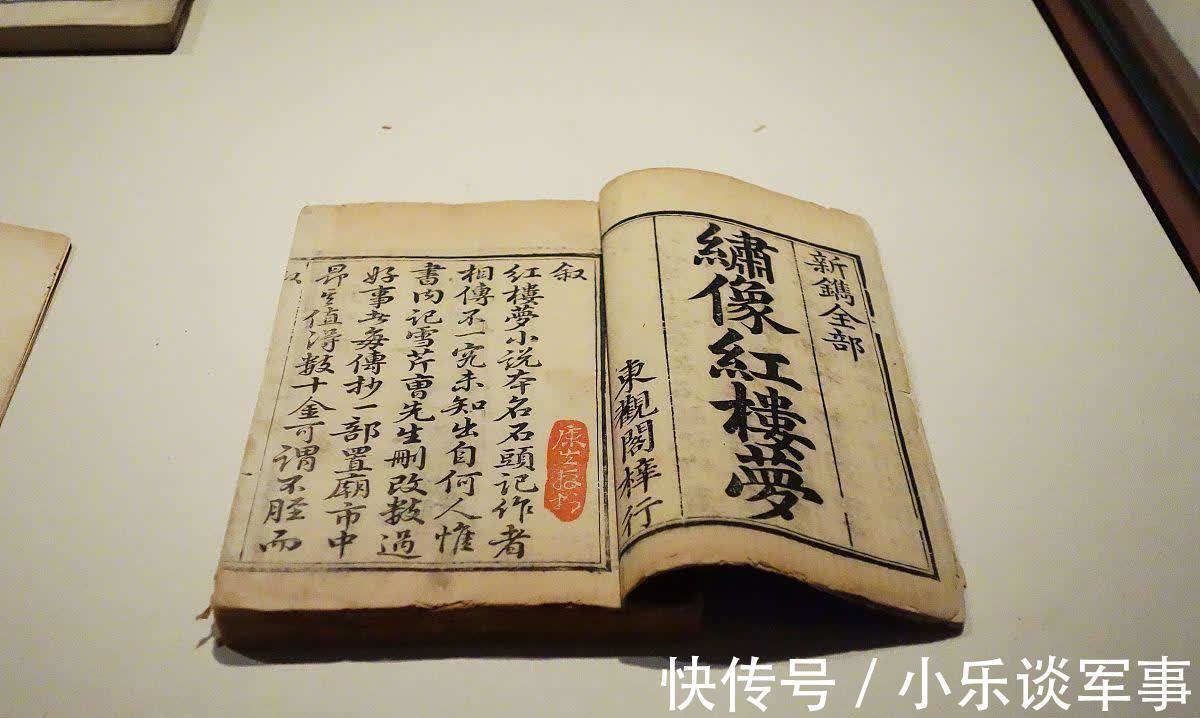 新鐫全部
繡像紅樓夢
東觀閣梓行
叙
紅樓夢小説本名石頭記作者
相傳不一究未知出自何人惟
書内記雪芹曹先生刪改数過
好事者每傳抄一部置廟市中
昂其值得数十金可謂不脛而
快传号 / 小乐谈军事